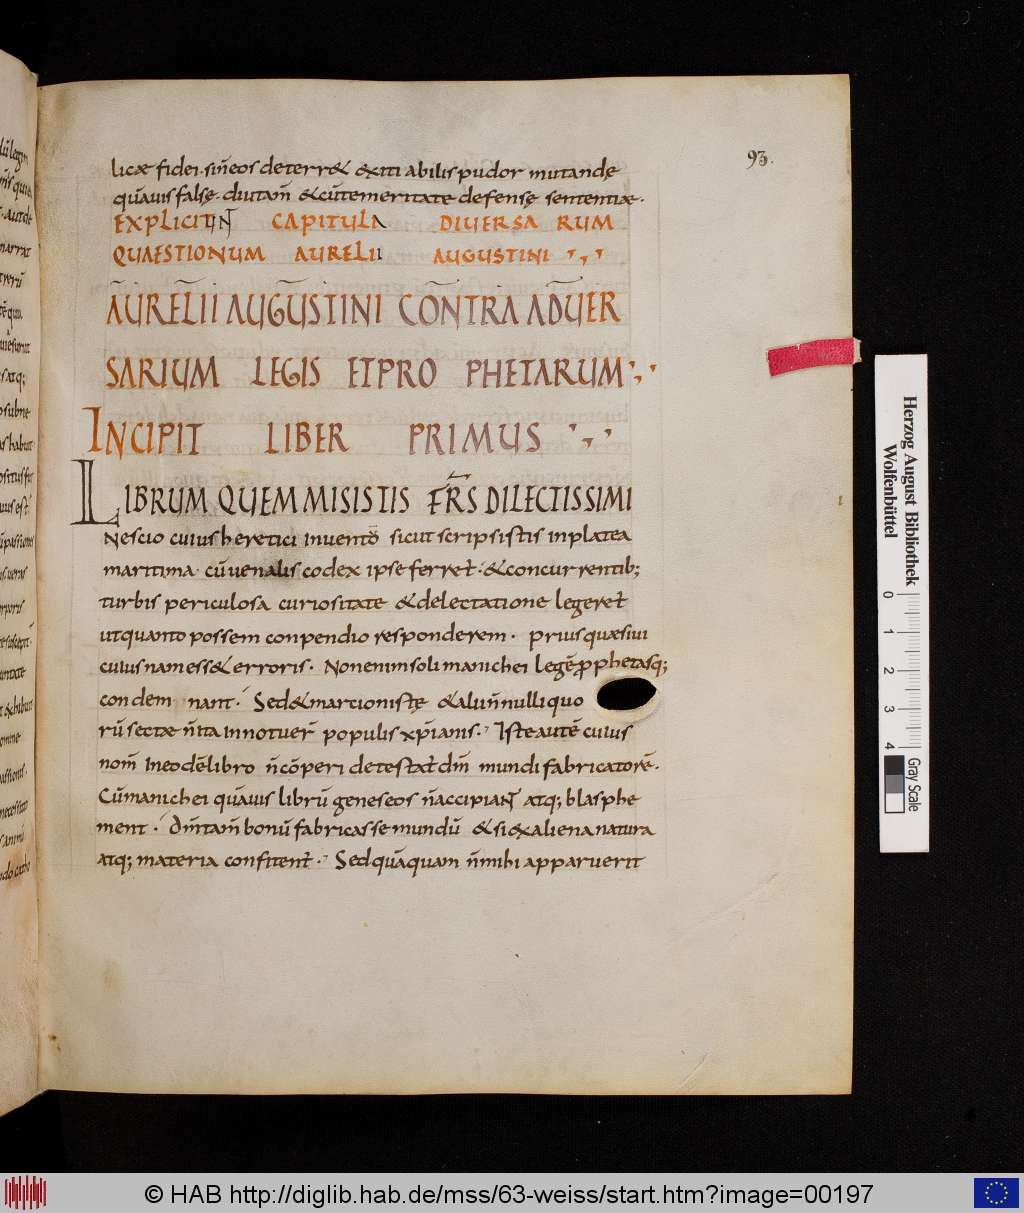 93.
licæ fidei. sin̄ eos deterr& exiti abilis pudor mutandę
quāuis falsę. diutam̄ &cūtemeritate defensę sententiæ.
EXPLICIUN̄T CAPITULA DIUERSA RUM
QUAESTIONUM AURELII AUGUSTINI
AURELII AUGUSTINI CONTRA ADUER
SARIUM LEGIS ET PRO PHETARUM
INCIPIT LIBER PRIMUS
LIBRUM QUEM MISISTIS FR̄S DILECTISSIMI
Nescio cuius heretici inuentō sicut scripsistis in platea
maritima. cū uenalis codex ipse ferret. &concurrentib;
turbis periculosa curiositate &delectatione legeret
utquanto possem conpendio responderem. prius quæsiui
cuiusnam ess& erroris. Nonenim soli manichei legē p̄phetasq;
condem nant. Sed&marcionistę &alii n̄nulli quo
rū sectae n̄ ita innotuer̄ populis xp̄ianis. Iste autē cuius
nom̄ ineodē libro n̄ cōperi detestat̄ dm̄ mundi fabricatorē.
Cūmanichei quāuis librū geneseos n̄accipiant atq; blasphe
ment. Dm̄ tam̄ bonū fabricasse mundū &si exaliena natura
atq; materia confitent̄. Sed quāquam n̄ mihi apparuerit
Herzog August Bibliothek
Wolfenbüttel
0 1 2 3 4
Gray Scale
© HAB http://diglib.hab.de/mss/63-weiss/start.htm?image=00197